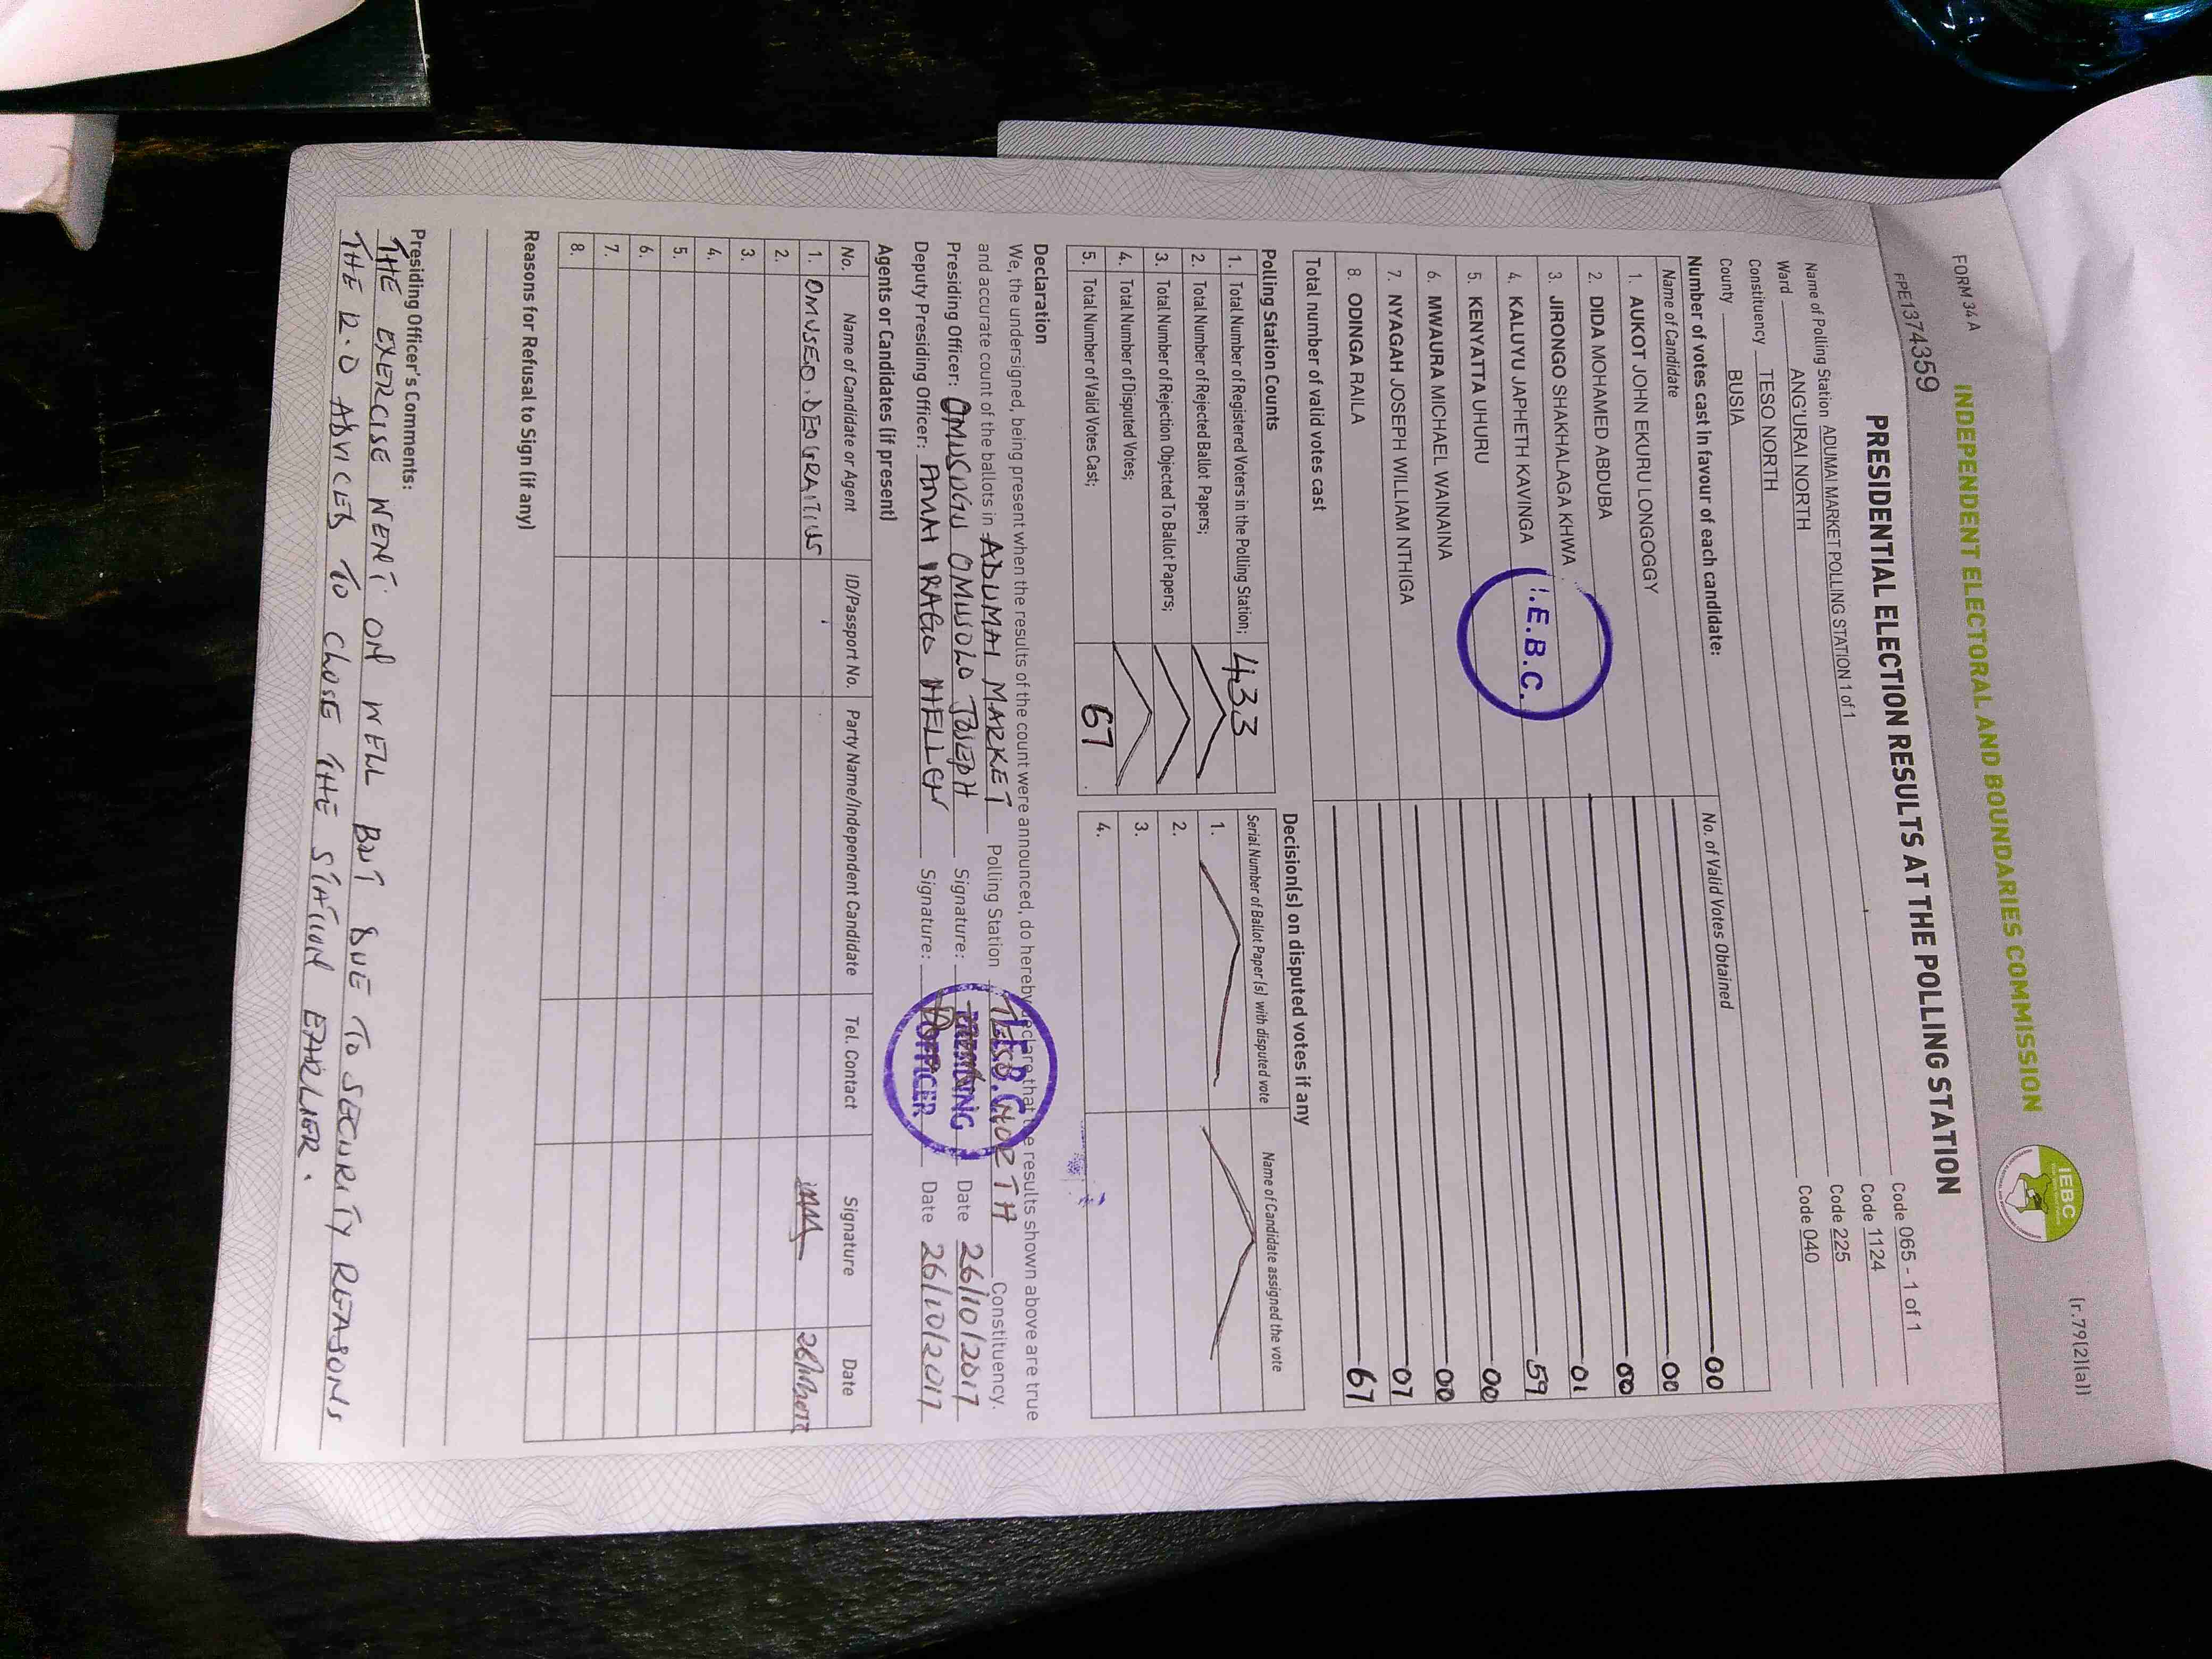 FORM 34 A
(r.79(2)(a))
INDEPENDENT ELECTORAL AND BOUNDARIES COMMISSION
IEBC
PRE1374359
PRESIDENTIAL ELECTION RESULTS AT THE POLLING STATION
Name of Polling Station ADUMAI MARKET POLLING STATION 1 of 1 Code 065 - 1 of 1
Ward ANG'URAI NORTH Code 1124
Constituency TESO NORTH Code 225
County BUSIA Code 040
Number of votes cast in favour of each candidate:
Name of Candidate No. of Valid Votes Obtained
1. AUKOT JOHN EKURU LONGOGGY 00
2. DIDA MOHAMED ABDUBA 00
3. JIRONGO SHAKHALAGA KHWA 00
4. KALUYU JAPHETH KAVINGA 01
5. KENYATTA UHURU 59
6. MWAURA MICHAEL WAINAINA 00
7. NYAGAH JOSEPH WILLIAM NTHIGA 00
8. ODINGA RAILA 07
Total number of valid votes cast 67
I.E.B.C.
Polling Station Counts
1. Total Number of Registered Voters in the Polling Station; 433
2. Total Number of Rejected Ballot Papers;
3. Total Number of Rejection Objected To Ballot Papers;
4. Total Number of Disputed Votes;
5. Total Number of Valid Votes Cast; 67
Decision(s) on disputed votes if any
Serial Number of Ballot Paper (s) with disputed vote Name of Candidate assigned the vote
1.
2.
3.
4.
Declaration
We, the undersigned, being present when the results of the count were announced, do hereby declare that the results shown above are true
and accurate count of the ballots in ADUMAI MARKET Polling Station TESO NORTH Constituency.
Presiding Officer: OMUSUGU OMUSOLO JOSEPH Signature: Date 26/10/2017
Deputy Presiding Officer: IRAGO HELLEN Signature: Date 26/10/2017
I.E.B.C.
PRESIDING
OFFICER
Agents or Candidates (if present)
No. Name of Candidate or Agent ID/Passport No. Party Name/Independent Candidate Tel. Contact Signature Date
1. OMUSEO. DEOGRATIUS
2.
3.
4.
5.
6.
7.
8.
Reasons for Refusal to Sign (if any)
Presiding Officer's Comments:
THE EXERCISE WENT ON WELL BUT DUE TO SECURITY REASONS
THE R.O ADVICED TO CLOSE THE STATION EARLIER.